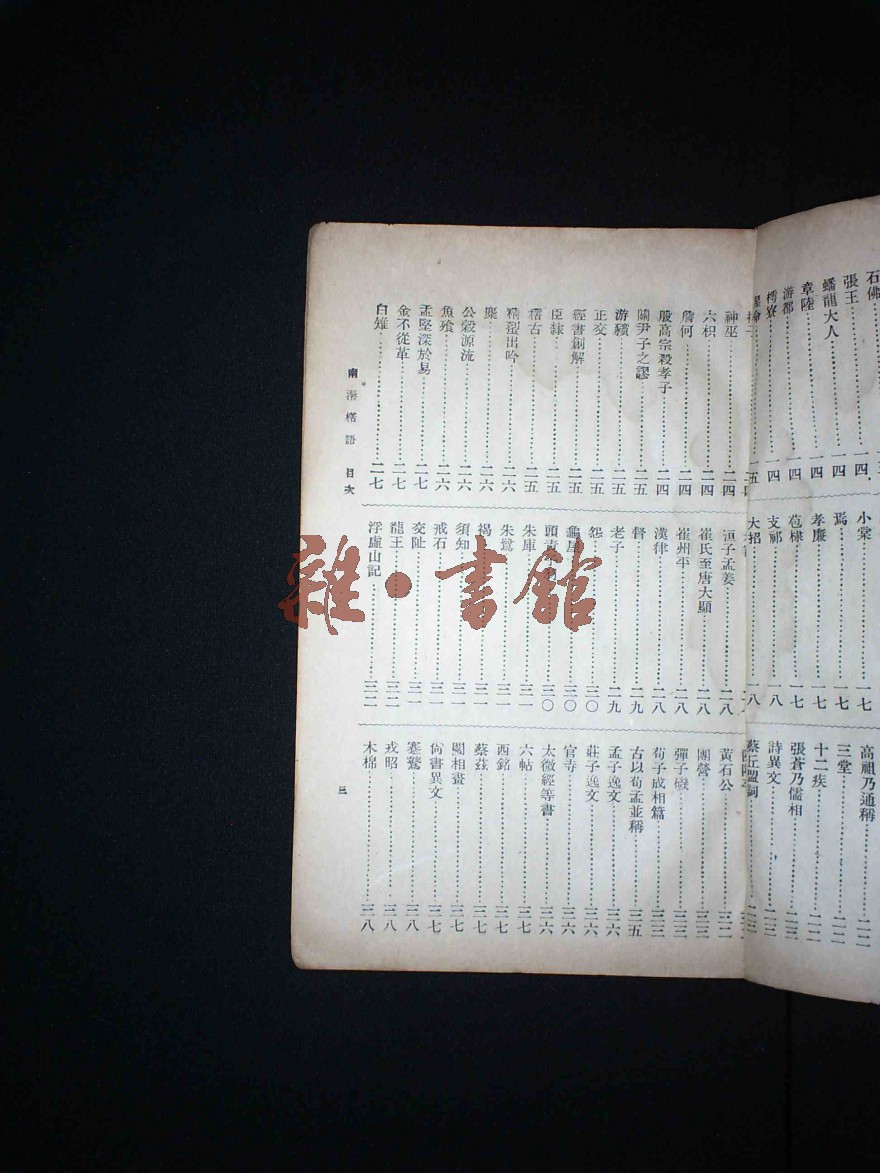 石佛
張王 一四
蟠龍大人 一四
章陸 一四
游都 一四
樗寮 一四
一五
神巫 二四
六枳 二四
詹何 二四
殷高宗殺孝子 二四
關尹子之謬 二五
游驥 二五
正交 二五
經書創解 二五
臣隸 二五
稽古 二五
精蛩出吟 二六
麇 二六
公穀源流 二六
魚飧 二六
孟堅深於易 二七
金不從革 二七
白雉 二七
小棠 一七
焉 一七
孝廉 一七
苞棣 一七
支祁 一八
大招 一八
洹子孟姜 二八
崔氏至唐大顯 二八
崔州平 二八
漢律 二八
督 二九
老子 二九
怨 三〇
龜 三〇
頭 三〇
朱庫 三一
朱鷺 三一
褐 三一
須知 三一
戒石 三一
交阯 三一
龍王 三二
浮虛山記 三二
高祖乃通稱 二二
三堂 二二
十二疾 二二
張蒼乃儒相 二三
詩異文 二三
蔡丘盟詞 二三
黃石公 三二
團營 三三
彈子磯 三三
荀子成相篇 三三
古以荀孟並稱 三五
孟子逸文 三六
莊子逸文 三六
官寺 三六
太微經等書 三六
六帖 三七
西銘 三七
蔡茲 三七
閻相畫 三七
尚書異文 三七
蹇驁 三八
戎昭 三八
木棉 三八
南漘楛語 目次
三
雜·書館